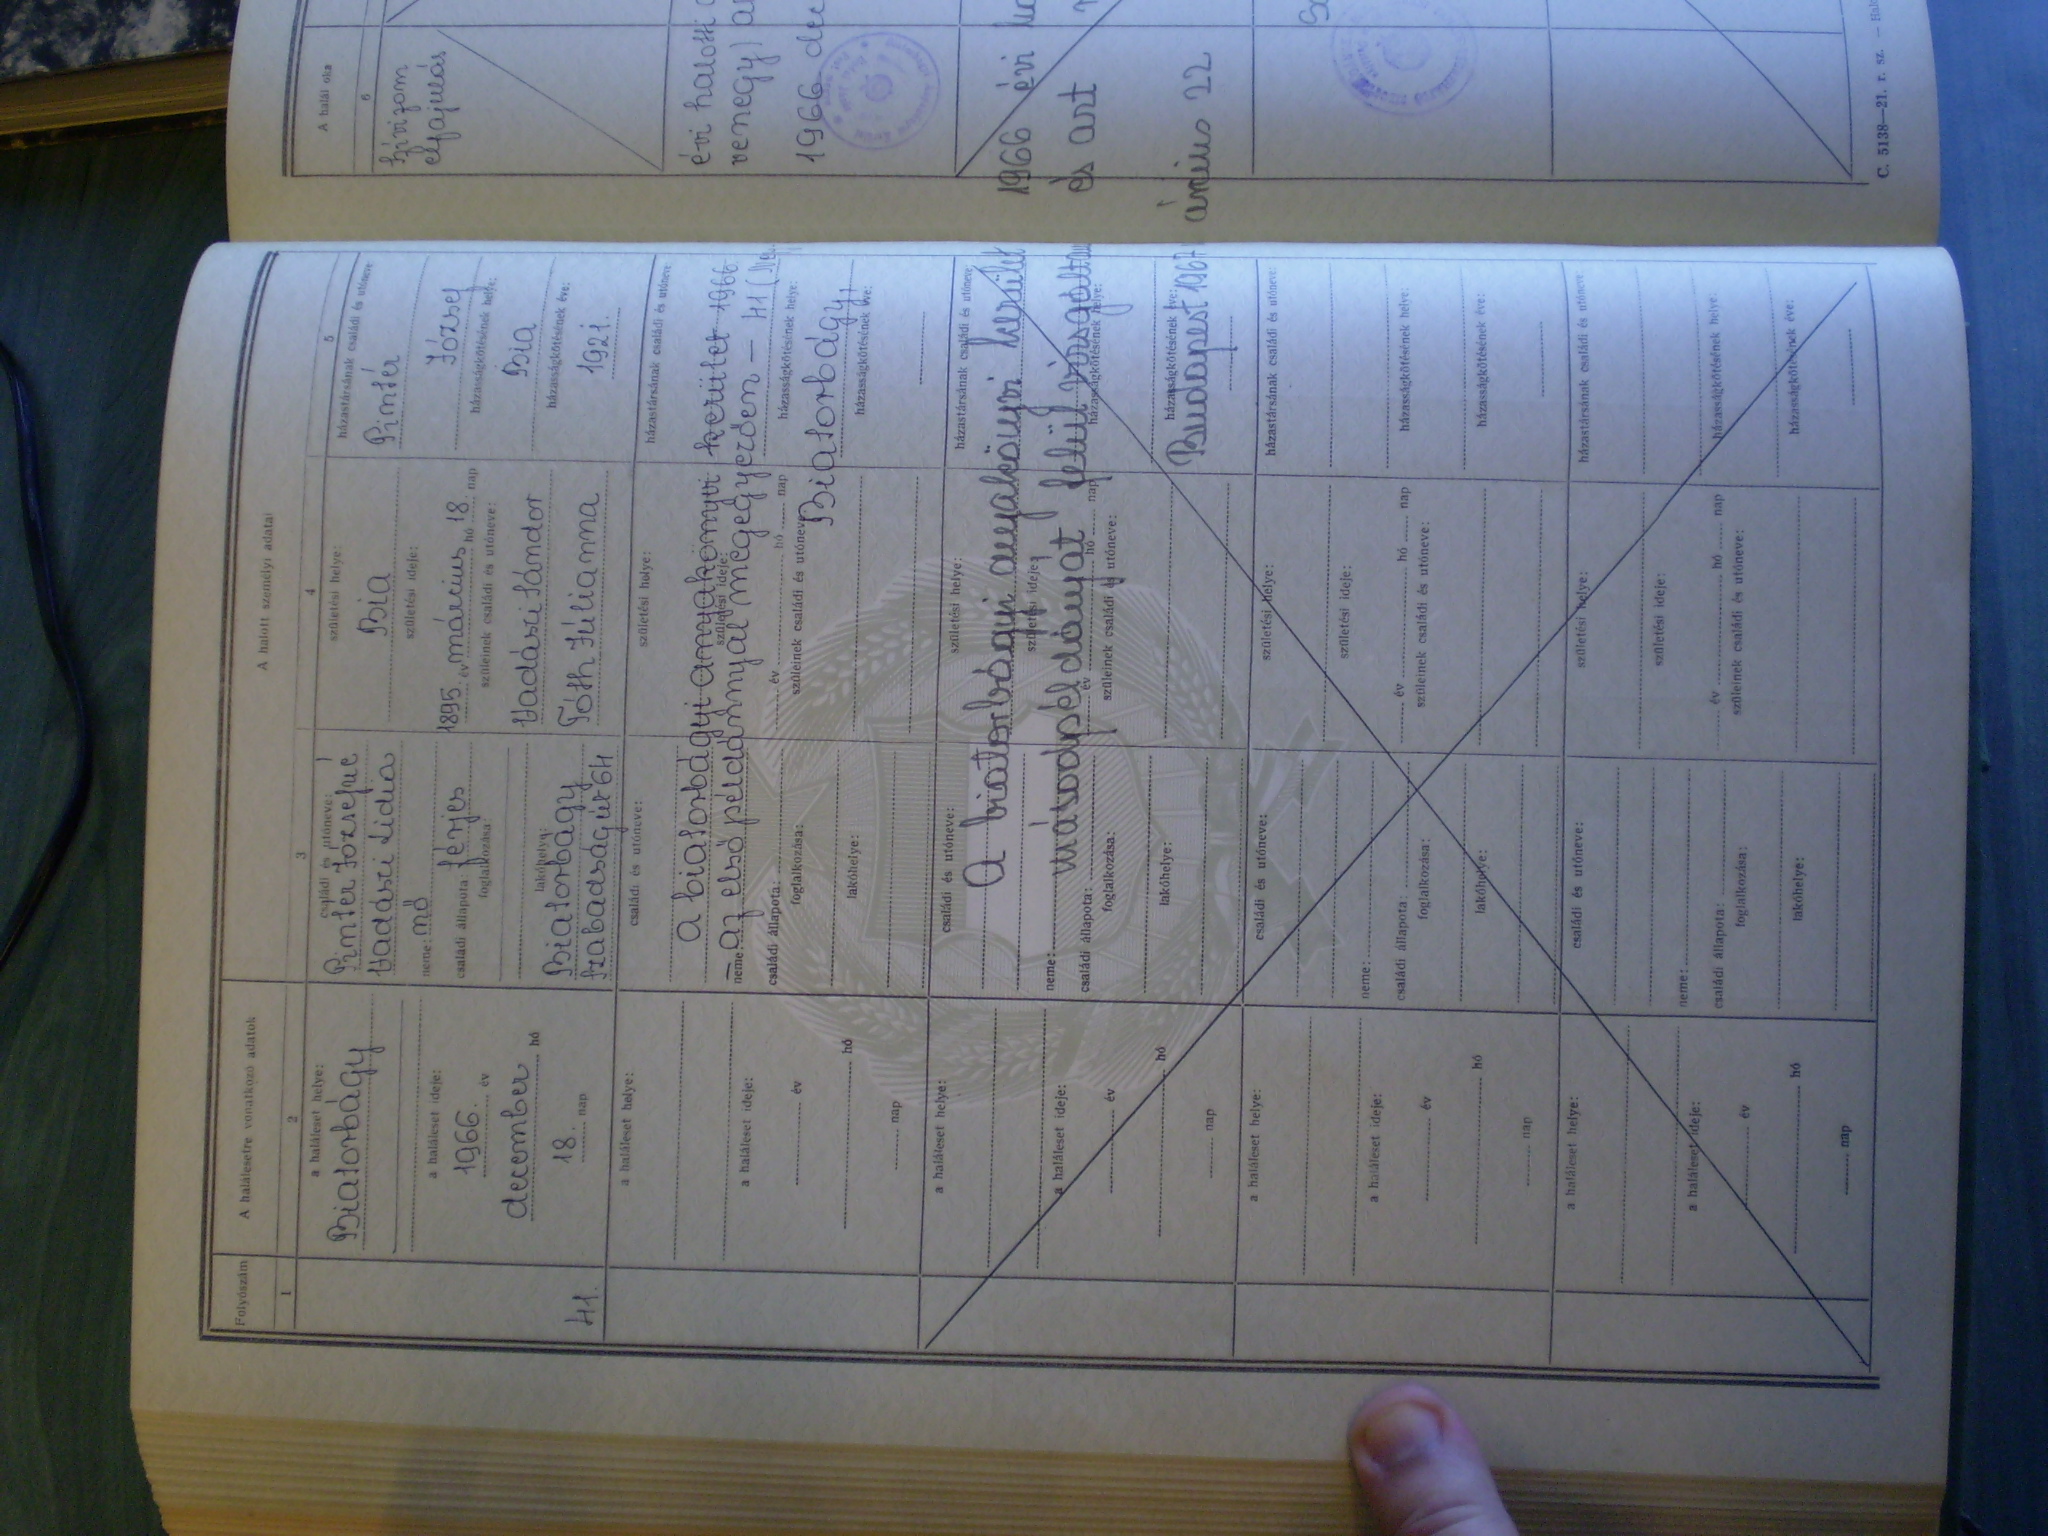 A halálesetre vonatkozó adatok
A halott személyi adatai
Folyószám
1
2
3
4
5
41.
a haláleset helye:
Biatorbágy
a haláleset ideje:
1966. év
december hó
18. nap
családi és utóneve:
Pintér Józsefné
Vadászi Lidia
neme: nő
családi állapota: férjes
foglalkozása:
lakóhelye:
Biatorbágy
Szabadságút 64
születési helye:
Bia
születési ideje:
1895 év március hó 18. nap
szüleinek családi és utóneve:
Vadászi Sándor
Tóth Júlianna
házastársának családi és utóneve:
Pintér
József
házasságkötésének helye:
Bia
házasságkötésének éve:
1921.
A halál oka
6
Szívizom
elfajulás
a haláleset helye:
a haláleset ideje:
év
hó
nap
családi és utóneve:
neme:
családi állapota:
foglalkozása:
lakóhelye:
születési helye:
születési ideje:
év hó nap
szüleinek családi és utóneve:
házastársának családi és utóneve:
házasságkötésének helye:
házasságkötésének éve:
A biatorbágyi anyakönyvi kerület 1966. évi halotti
– az első példánnyal megegyezően – 41 (
venegy)
Biatorbágy, 1966 de
a haláleset helye:
a haláleset ideje:
év
hó
nap
családi és utóneve:
neme:
családi állapota:
foglalkozása:
lakóhelye:
születési helye:
születési ideje:
év hó nap
szüleinek családi és utóneve:
házastársának családi és utóneve:
házasságkötésének helye:
házasságkötésének éve:
A biatorbágyi anyakönyvi kerület 1966 évi
másodpéldányát felülvizsgáltam és azt
Budapest 1967
22
a haláleset helye:
a haláleset ideje:
év
hó
nap
családi és utóneve:
neme:
családi állapota:
foglalkozása:
lakóhelye:
születési helye:
születési ideje:
év hó nap
szüleinek családi és utóneve:
házastársának családi és utóneve:
házasságkötésének helye:
házasságkötésének éve:
a haláleset helye:
a haláleset ideje:
év
hó
nap
családi és utóneve:
neme:
családi állapota:
foglalkozása:
lakóhelye:
születési helye:
születési ideje:
év hó nap
szüleinek családi és utóneve:
házastársának családi és utóneve:
házasságkötésének helye:
házasságkötésének éve:
C. 5138—21. r. sz. — Hal